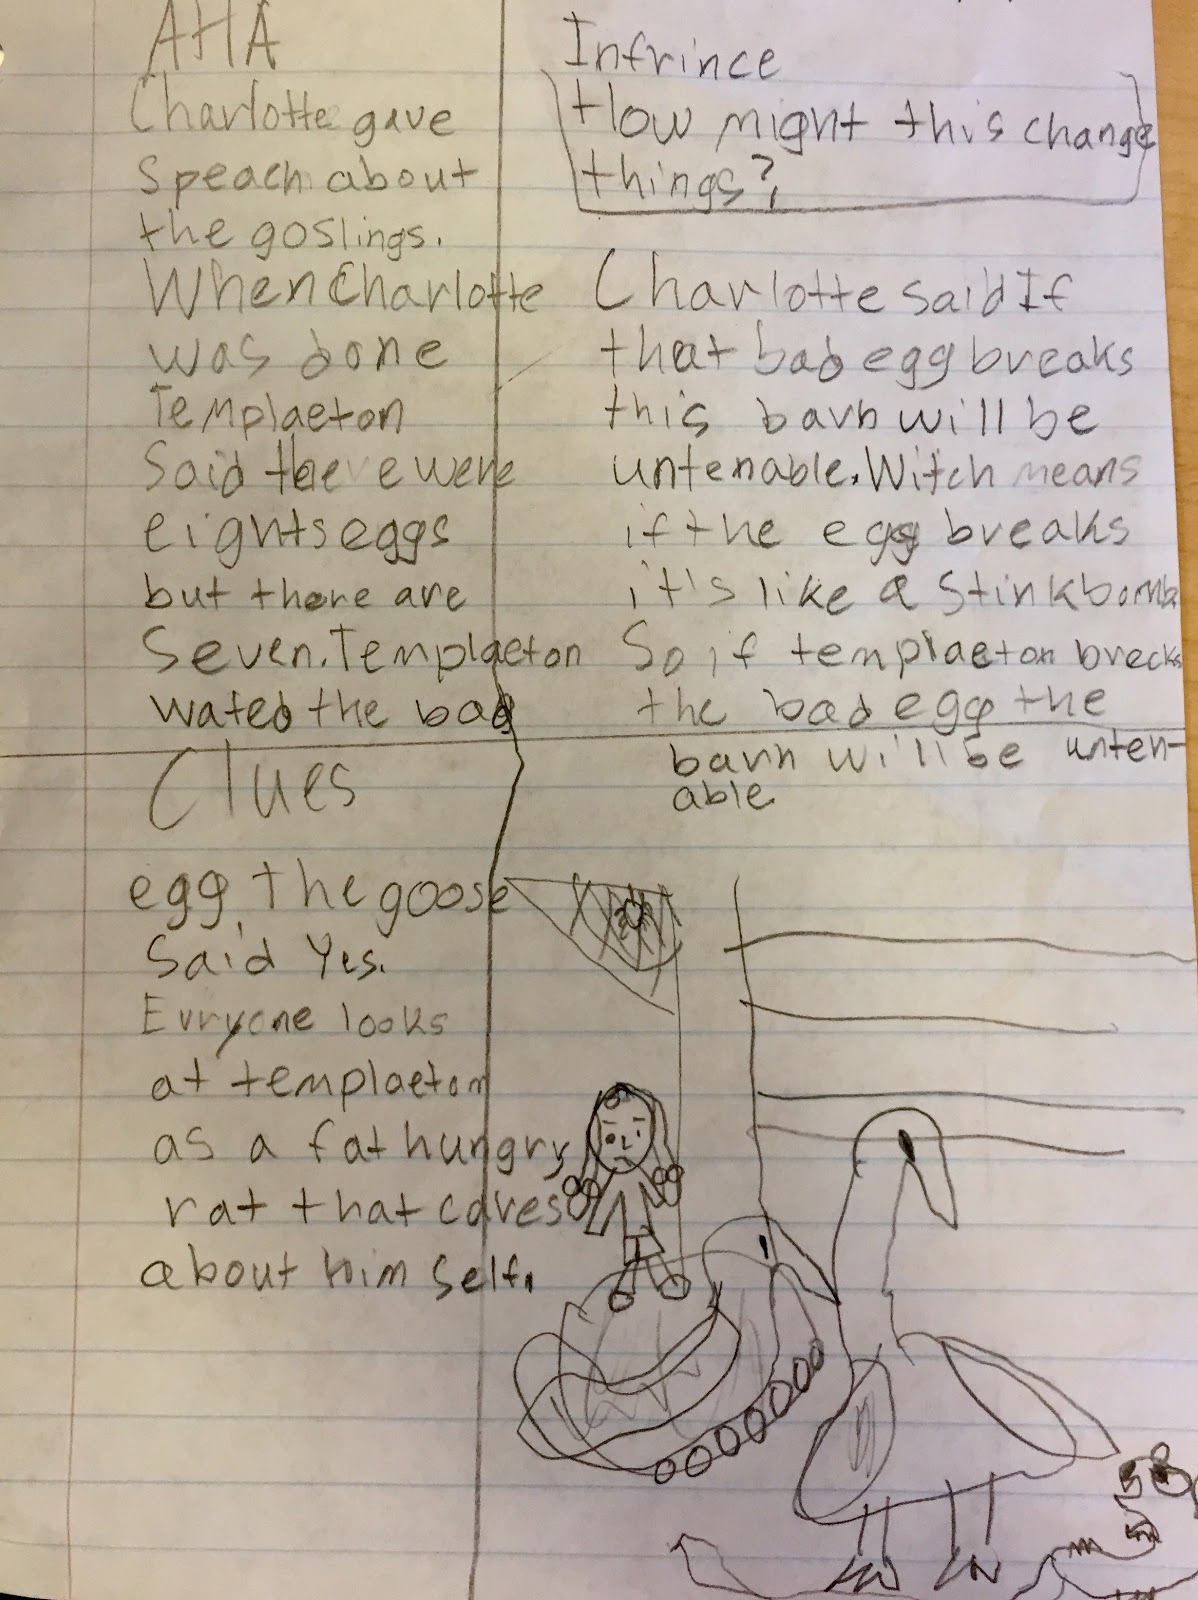 AHA
Charlotte gave
Speach about
the goslings.
When Charlotte
was done
Templaeton
Said there were
eights eggs
but there are
Seven. Templaeton
wated the bad
Clues
egg, the goose
Said Yes.
Evryone looks
at templaeton
as a fat hungry
rat that cares
about him self.
Infrince
How might this change
things?
Charlotte said If
that bad egg breaks
this barn will be
untenable. Witch means
if the egg breaks
it's like a Stinkbomb
So if templaeton brecks
the bad egg the
barn will be unten-
able